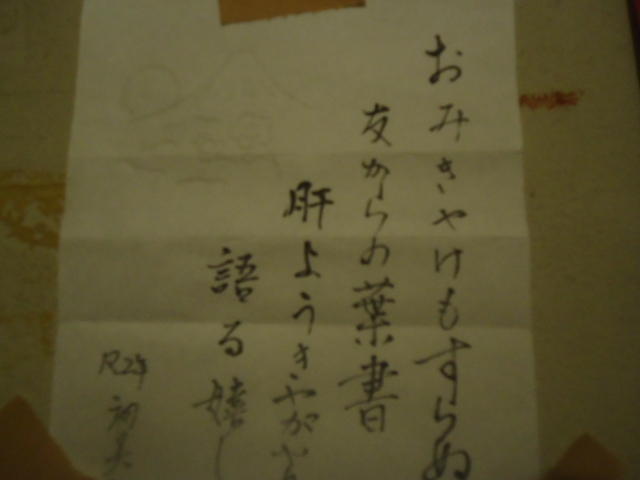 おみきやけもすらぬ
友からの葉書
肝ようきやがる
語る嬉し
R2年
初美